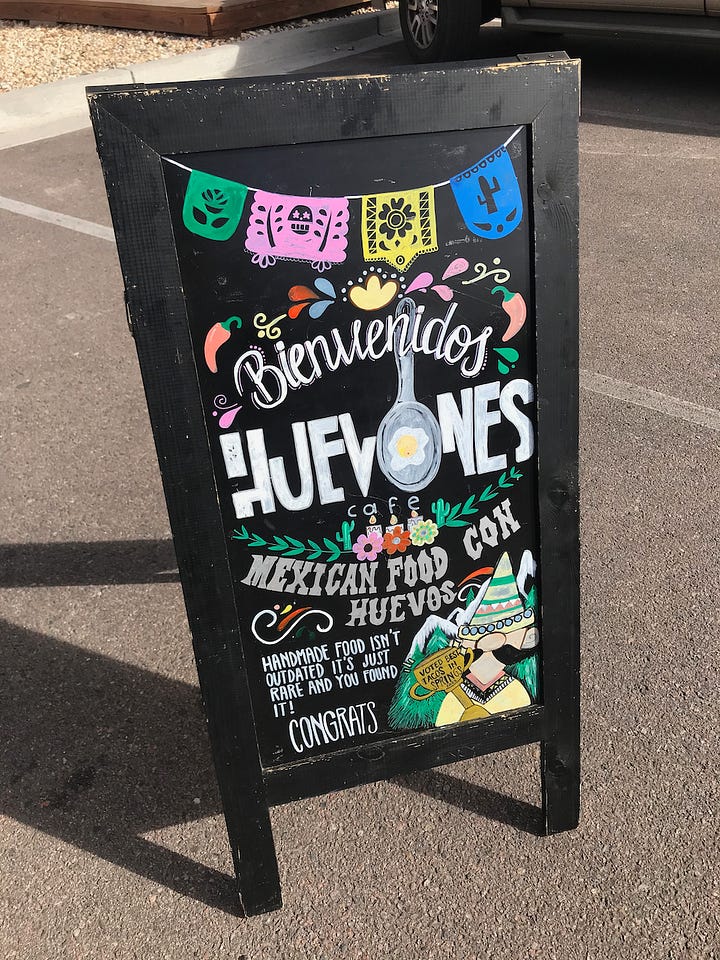 Bienvenidos
HUEVONES
cafe
MEXICAN FOOD CON
HUEVOS
HANDMADE FOOD ISN'T
OUTDATED IT'S JUST
RARE AND YOU FOUND
IT!
CONGRATS
VOTED BEST
TACOS IN
SPRINGS